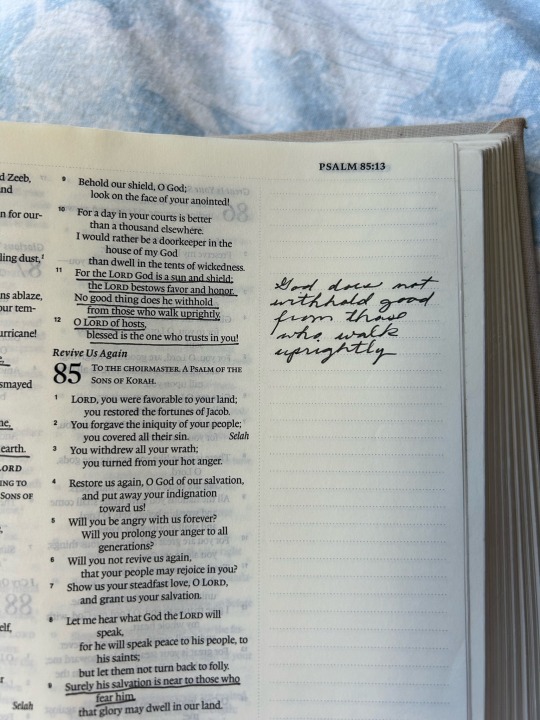 PSALM 85:13
d Zeeb,
nd
n for our-
ling dust,
ns ablaze,
our tem-
urricane!
smayed
ne,
earth.
LORD
ING TO
SONS OF
elf,
Selah
9 Behold our shield, O God;
look on the face of your anointed!
10 For a day in your courts is better
than a thousand elsewhere.
I would rather be a doorkeeper in the
house of my God
than dwell in the tents of wickedness.
11 For the LORD God is a sun and shield;
the LORD bestows favor and honor.
No good thing does he withhold
from those who walk uprightly.
12 O LORD of hosts,
blessed is the one who trusts in you!
Revive Us Again
85 TO THE CHOIRMASTER. A PSALM OF THE
SONS OF KORAH.
1 LORD, you were favorable to your land;
you restored the fortunes of Jacob.
2 You forgave the iniquity of your people;
you covered all their sin. Selah
3 You withdrew all your wrath;
you turned from your hot anger.
4 Restore us again, O God of our salvation,
and put away your indignation
toward us!
5 Will you be angry with us forever?
Will you prolong your anger to all
generations?
6 Will you not revive us again,
that your people may rejoice in you?
7 Show us your steadfast love, O LORD,
and grant us your salvation.
8 Let me hear what God the LORD will
speak,
for he will speak peace to his people, to
his saints;
but let them not turn back to folly.
9 Surely his salvation is near to those who
fear him,
that glory may dwell in our land.
God does not
withhold good
from those
who walk
uprightly